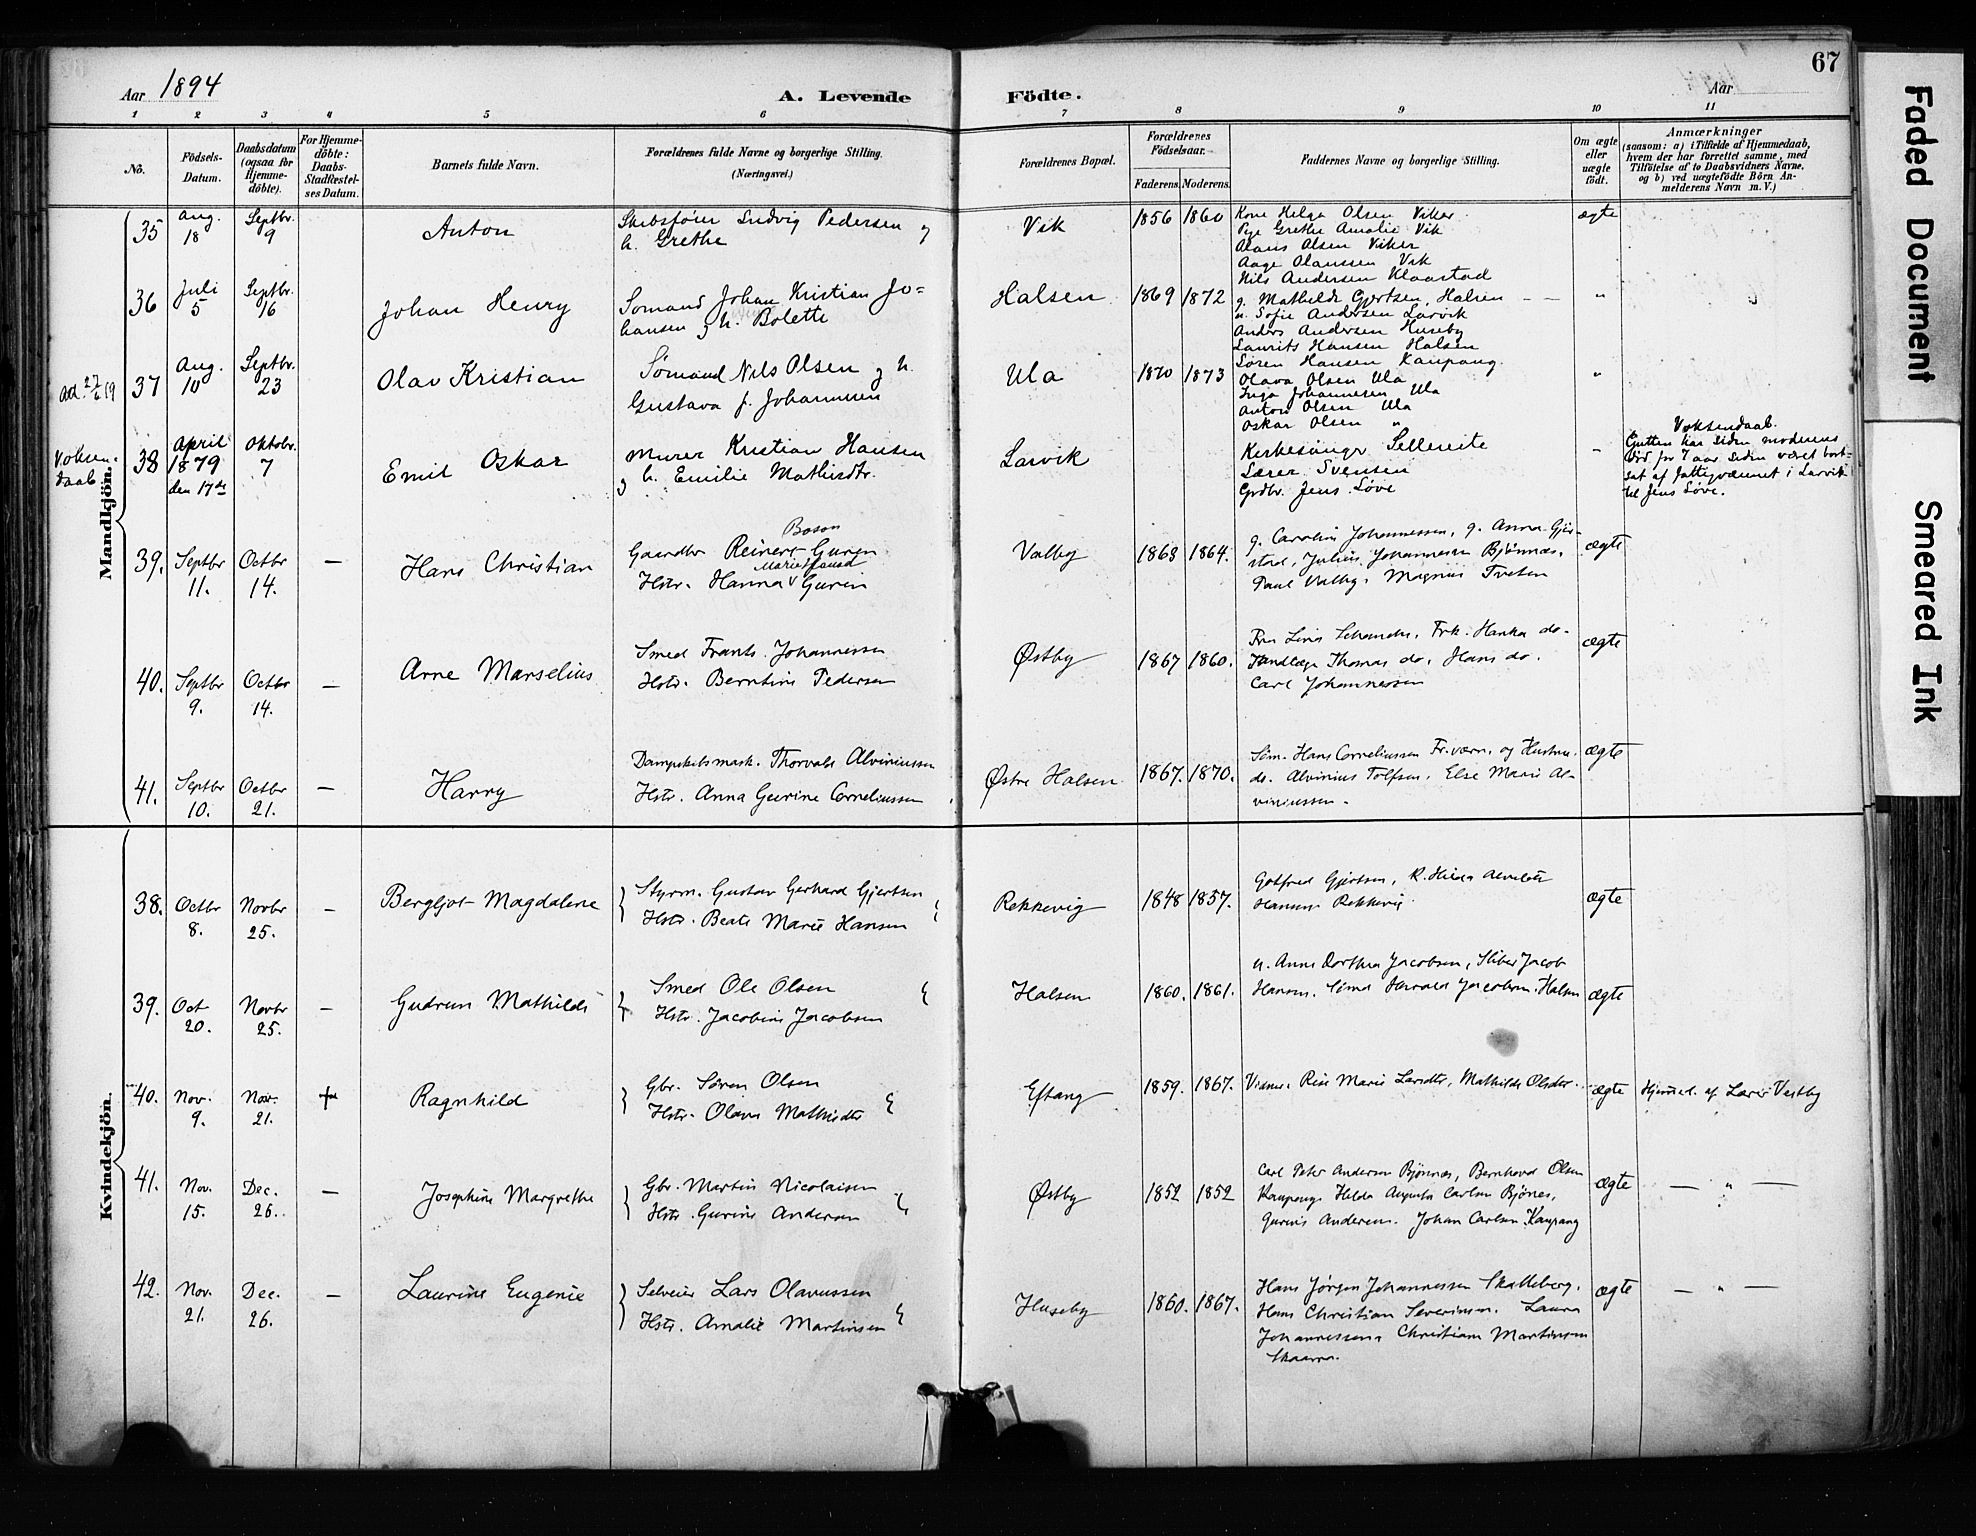 67
Aar 1894
A. Levende Födte.
Aar
1 2 3 4 5 6 7 8 9 10 11
No.
Födsels-Datum.
Daabsdatum (ogsaa for Hjemme-döbte).
For Hjemme-döbte: Daabs-Stadfæstel-ses Datum.
Barnets fulde Navn.
Forældrenes fulde Navne og borgerlige Stilling.
(Næringsvei.)
Forældrenes Bopæl.
Forældrenes Födselsaar.
Faderens. Moderens.
Faddernes Navne og borgerlige Stilling.
Om ægte eller uægte födt.
Anmærkninger
(saasom: a) i Tilfælde af Hjemmedaab,
hvem der har forrettet samme, med
Tilföielse af to Daabsvidners Navne.
og b) ved uægtefödte Börn An-
melderens Navn m. V.)
Mandkjön.
35 Aug. 18 Septbr. 9 Anton
Skibsfører Ludvig Pedersen og
h. Grethe
Vik 1856 1860
Kone Helga Olsen Viker
Pige Grethe Amalie Vik
Olaus Olsen Viker
Aage Olaussen Vik
Nils Andersen Klaastad
ægte
36 Juli 5 Septbr. 16 Johan Henry
Sømand Johan Kristian Jo-
hansen og h. Bolette
Halsen 1869 1872
g. Mathilde Gjertsen, Halsen
u. Sofie Andersen Larvik
Anders Andersen Huseby
Laurits Hansen Halsen
Søren Hansen Kaupang
"
37 Aug. 10 Septbr. 23 Olav Kristian
Sømand Nils Olsen og h.
Gustava f. Johannesen
Ula 1870 1873
Olava Olsen Ula
Inga Johannesen Ula
Anton Olsen Ula
Oskar Olsen "
"
Voksen-
daab.
38 April 1879 den 17de Oktobr. 7 Emil Oskar
Murer Kristian Hansen
og h. Emilie Mathisdtr.
Larvik
Kirkesanger Sellereite
Lærer Svensen
Grdbr. Jens Løve
-
Voksendaab.
Gutten har siden moderens
død for 7 aar siden været bort-
sat af fattigvæsenet i Larvik
til Jens Løve.
39. Septbr 11. Octbr 14. — Hans Christian
Boson
Gaardbr Reinert Guren
Marie
Hstr. Hanna Guren
Valby 1863 1864.
g. Caroline Johannessen, g. Anna Gjer-
stad, Julius Johannesen Bjønnes,
Paul Valby, Magnus Tveten
ægte
40. Septbr 9. Octbr 14. — Arne Marselius
Smed Frants Johannessen
Hstr. Berntine Pedersen
Østby 1867 1860.
Fru Lina, Frk. Hanka do.
Thomas do, Hans do.
Carl Johannessen
ægte
41. Septbr 10. Octbr 21. — Harry
Dampskibsmask. Thorvald Alviniussen
Hstr. Anna Gurine Corneliussen
Østre Halsen 1867. 1870.
Søm. Hans Corneliussen Fr.værn, og Hustru
do. Alvinius Tolfsen, Else Marie Al-
viniussen.
ægte
Kvindekjön.
38. Octbr 8. Novbr 25. — Bergljot Magdalene
Styrm. Gustav Gerhard Gjertsen
Hstr. Beate Marie Hansen
Rekkevig 1848 1857.
Gotfred Gjertsen, K. Hilda
Hansen Rekkevig
ægte
39. Oct 20. Novbr 25. — Gudrun Mathilde
Smed Ole Olsen
Hstr. Jacobine Jacobsen
Halsen 1860. 1861.
u. Anne Dorthea Jacobsen, Jacob
Hansen. Sømd Harald Jacobsen. Halsen
ægte
40. Nov. 9. Nov. 21. + Ragnhild
Gbr. Søren Olsen
Hstr. Olava Mathisdtr
Eftang 1859. 1867.
Vidner: Risa Marie Larsdtr, Mathilde Olsdtr.
ægte Hjemmed. af Lærer Vestby
41. Nov. 15. Dec. 26. — Josephine Margrethe
Gbr. Martin Nicolaisen
Hstr. Gurine Andersen
Østby 1852 1852
Carl Peter Andersen Bjønnes, Bernhard Olsen
Kaupang. Helda Augusta Carlsen Bjønes,
Gurine Andersen. Johan Carlsen Kaupang
ægte — " —
42. Nov. 21. Dec. 26. — Laurine Eugenie
Selveier Lars Olavussen
Hstr. Amalie Martinsen
Huseby 1860. 1867.
Hans Jørgen Johannessen Skalleberg.
Hans Christian Severinsen. Laura
Johannessen, Christiane Martinsen
ægte — " —
Faded Document
Smeared Ink